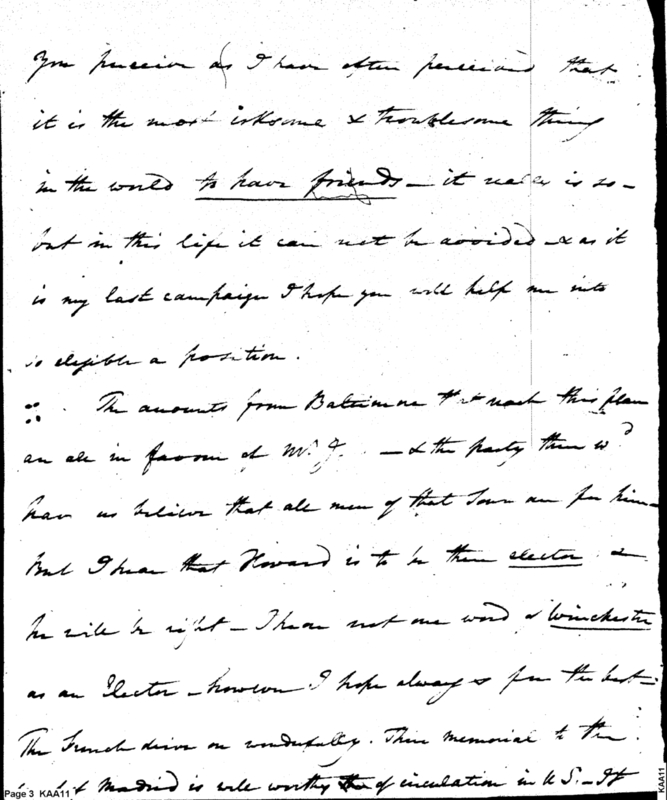 You perceive as I have often perceived that
it is the most irksome & troublesome thing
in the world to have friends – it really is so –
but in this life it can not be avoided – & as it
is my last campaign I hope you will help me into
so eligible a position.
The accounts from Baltimore that reach this place
are all in favour of Mr. J. – & the party there wd
have us believe that all men of that Town are for him –
But I hear that Howard is to be their elector &
he will be right – I hear not one word of Winchester
as an Elector – however I hope always for the best –
The French drive on wonderfully. Their memorial to the
of Madrid is well worthy of circulation in U.S. – It
Page 3 KAA11
KAA11